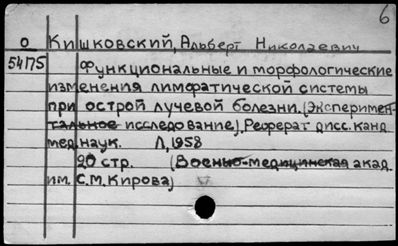 6
О Кишковский, Альберт Николаевич
54175 Функциональные и морфологические
изменения лимфатической системы
при острой лучевой болезни. (Эксперимен-
тальное исследование). Реферат дисс. канд.
мед. наук. Л, 1958
20 стр. (Военно-медицинская акад.
им. С.М. Кирова)